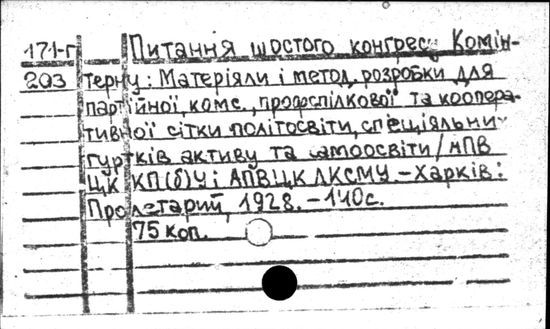 171-г Питання шостого конгресу Комін-
203 терну: Матеріяли і метод. розробки для
партійної, комс., профспілкової та коопера-
тивної сітки політосвіти, спеціяльни
гуртків активу та самоосвіти / АПВ
ЦК КП(б)У і АПВ ЦК ЛКСМУ. – Харків:
Пролетарий, 1928. – 140 с.
75 коп.